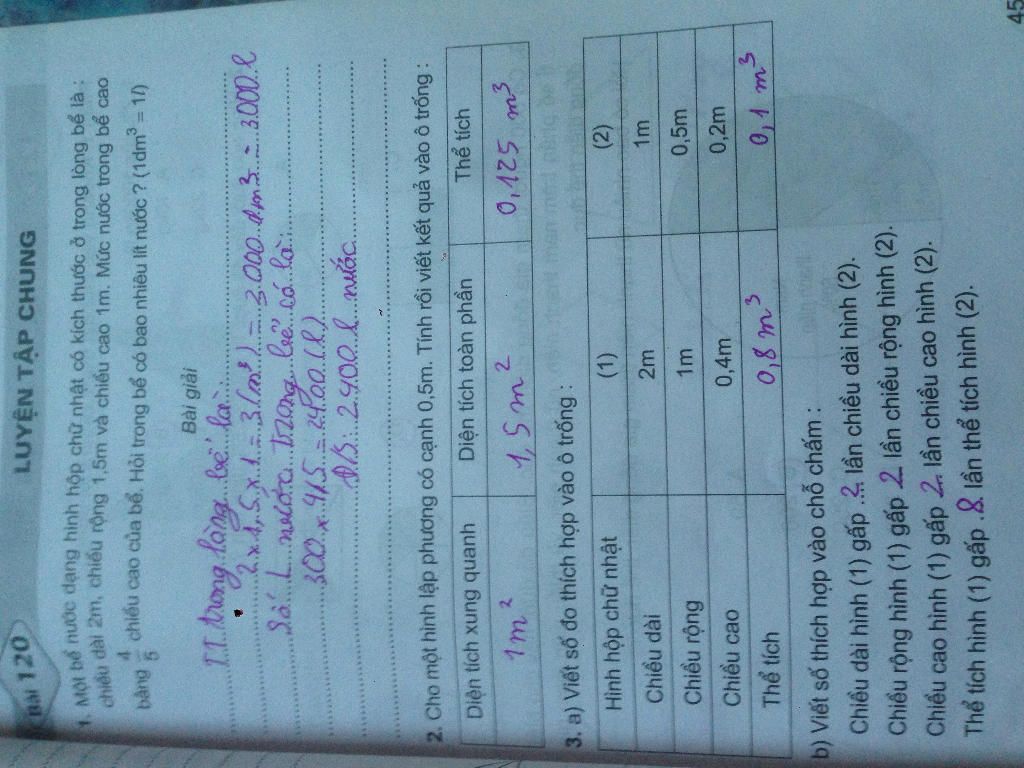 Bài 120 LUYỆN TẬP CHUNG
1. Một bể nước dạng hình hộp chữ nhật có kích thước ở trong lòng bể là :
chiều dài 2m, chiều rộng 1,5m và chiều cao 1m. Mức nước trong bể cao
bằng 4/5 chiều cao của bể. Hỏi trong bể có bao nhiêu lít nước ? (1dm³ = 1l)
Bài giải
TT trong lòng bể là:
2 x 1,5 x 1 = 3 (m³) = 3000 dm3 = 3000 l
Số l nước trong bể có là:
300 x 4/5 = 2400 (l)
Đ/S: 2400 l nước
2. Cho một hình lập phương có cạnh 0,5m. Tính rồi viết kết quả vào ô trống :
Diện tích xung quanh Diện tích toàn phần Thể tích
1 m² 1,5 m² 0,125 m³
3. a) Viết số đo thích hợp vào ô trống :
Hình hộp chữ nhật (1) (2)
Chiều dài 2m 1m
Chiều rộng 1m 0,5m
Chiều cao 0,4m 0,2m
Thể tích 0,8 m³ 0,1 m³
b) Viết số thích hợp vào chỗ chấm :
Chiều dài hình (1) gấp 2 lần chiều dài hình (2).
Chiều rộng hình (1) gấp 2 lần chiều rộng hình (2).
Chiều cao hình (1) gấp 2 lần chiều cao hình (2).
Thể tích hình (1) gấp 8 lần thể tích hình (2).
45